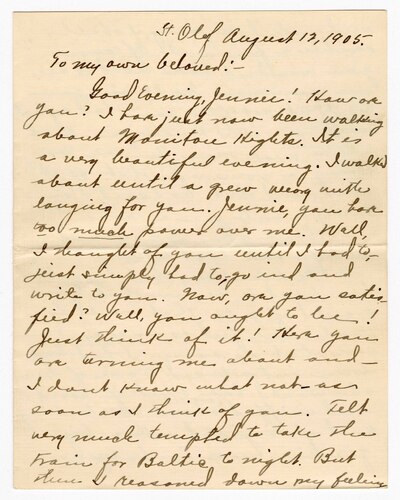 St. Olof August 12, 1905.
To my own beloved:-
Good Evening, Jennie! How are
you? I have just now been walking
about Manitou Hights. It is
a very beautiful evening. I walked
about until I grew weary with
longing for you. Jennie, you have
too much power over me. Well,
I thought of you until I had to,
just simply had to, go in and
write to you. Now, are you satis-
fied? Well, you ought to be!
Just think of it! Here you
are turning me about and-
I don't know what not- as
soon as I think of you. Felt
very much tempted to take the
train for Baltic to night. But
then I reasoned down my feeling